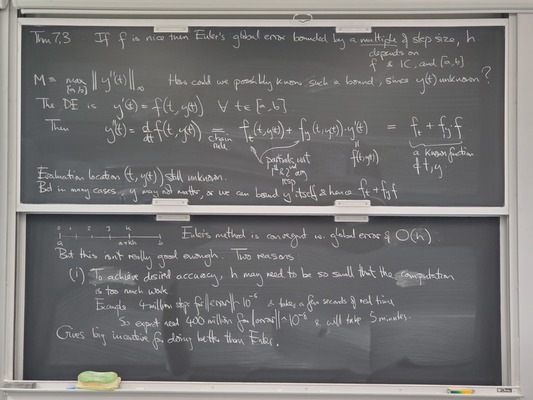 Thm 7.3 If f is nice then Euler's global error bounded by a multiple of step size, h
depends on
f & IC, and [a,b]
M = max ‖y''(t)‖∞ How could we possibly know such a bound, since y(t) unknown?
[a,b]
The DE is y'(t) = f(t, y(t)) ∀ t ∈ [a,b]
Then y''(t) = d/dt f(t, y(t)) = f_t(t, y(t)) + f_y(t, y(t))·y'(t) = f_t + f_y f
chain rule
partials wrt 1st & 2nd arg resp
f(t, y(t))
a known function of t, y
Evaluation location (t, y(t)) still unknown.
But in many cases, y may not matter, or we can bound y itself & hence f_t + f_y f
0 1 2 3 k
a a+kh b
Euler's method is convergent w. global error of O(h)
But this isn't really good enough. Two reasons
(i) To achieve desired accuracy, h may need to be so small that the computation
is too much work
Example 4 million steps for ‖error‖ ~ 10^-6 & takes a few seconds of real time
So expect need 400 million for ‖error‖ ~ 10^-8 & will take 5 minutes.
Gives big incentive for doing better than Euler.